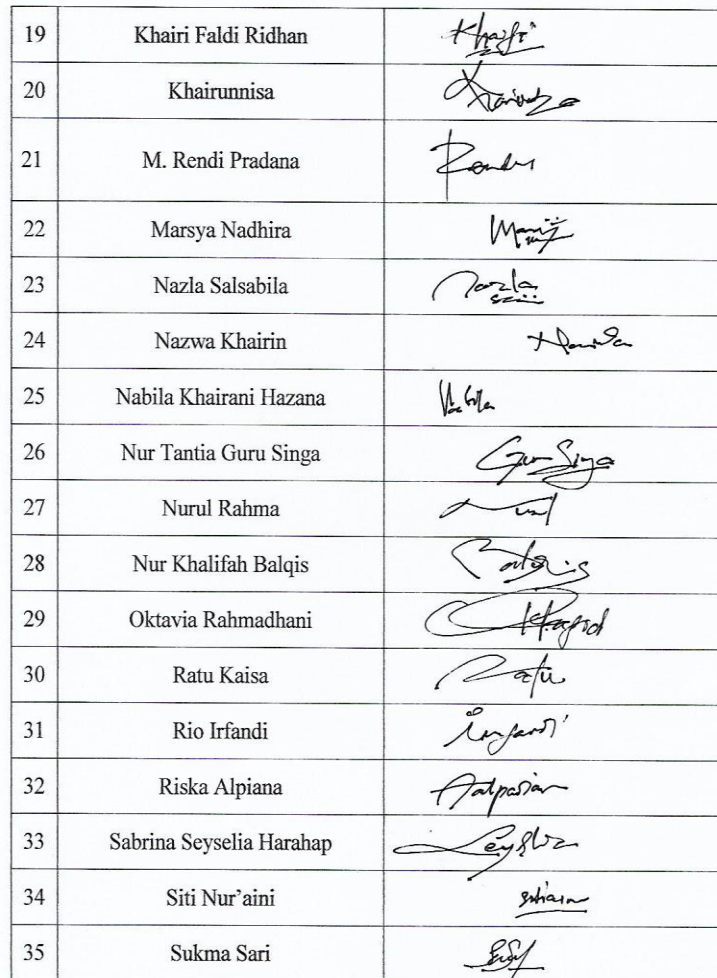 19 Khairi Faldi Ridhan Khaifi
20 Khairunnisa
21 M. Rendi Pradana Rendi
22 Marsya Nadhira
23 Nazla Salsabila Nazla
24 Nazwa Khairin
25 Nabila Khairani Hazana Nabila
26 Nur Tantia Guru Singa Guru Singa
27 Nurul Rahma
28 Nur Khalifah Balqis Balqis
29 Oktavia Rahmadhani
30 Ratu Kaisa Ratu
31 Rio Irfandi Irfandi
32 Riska Alpiana
33 Sabrina Seyselia Harahap
34 Siti Nur’aini
35 Sukma Sari